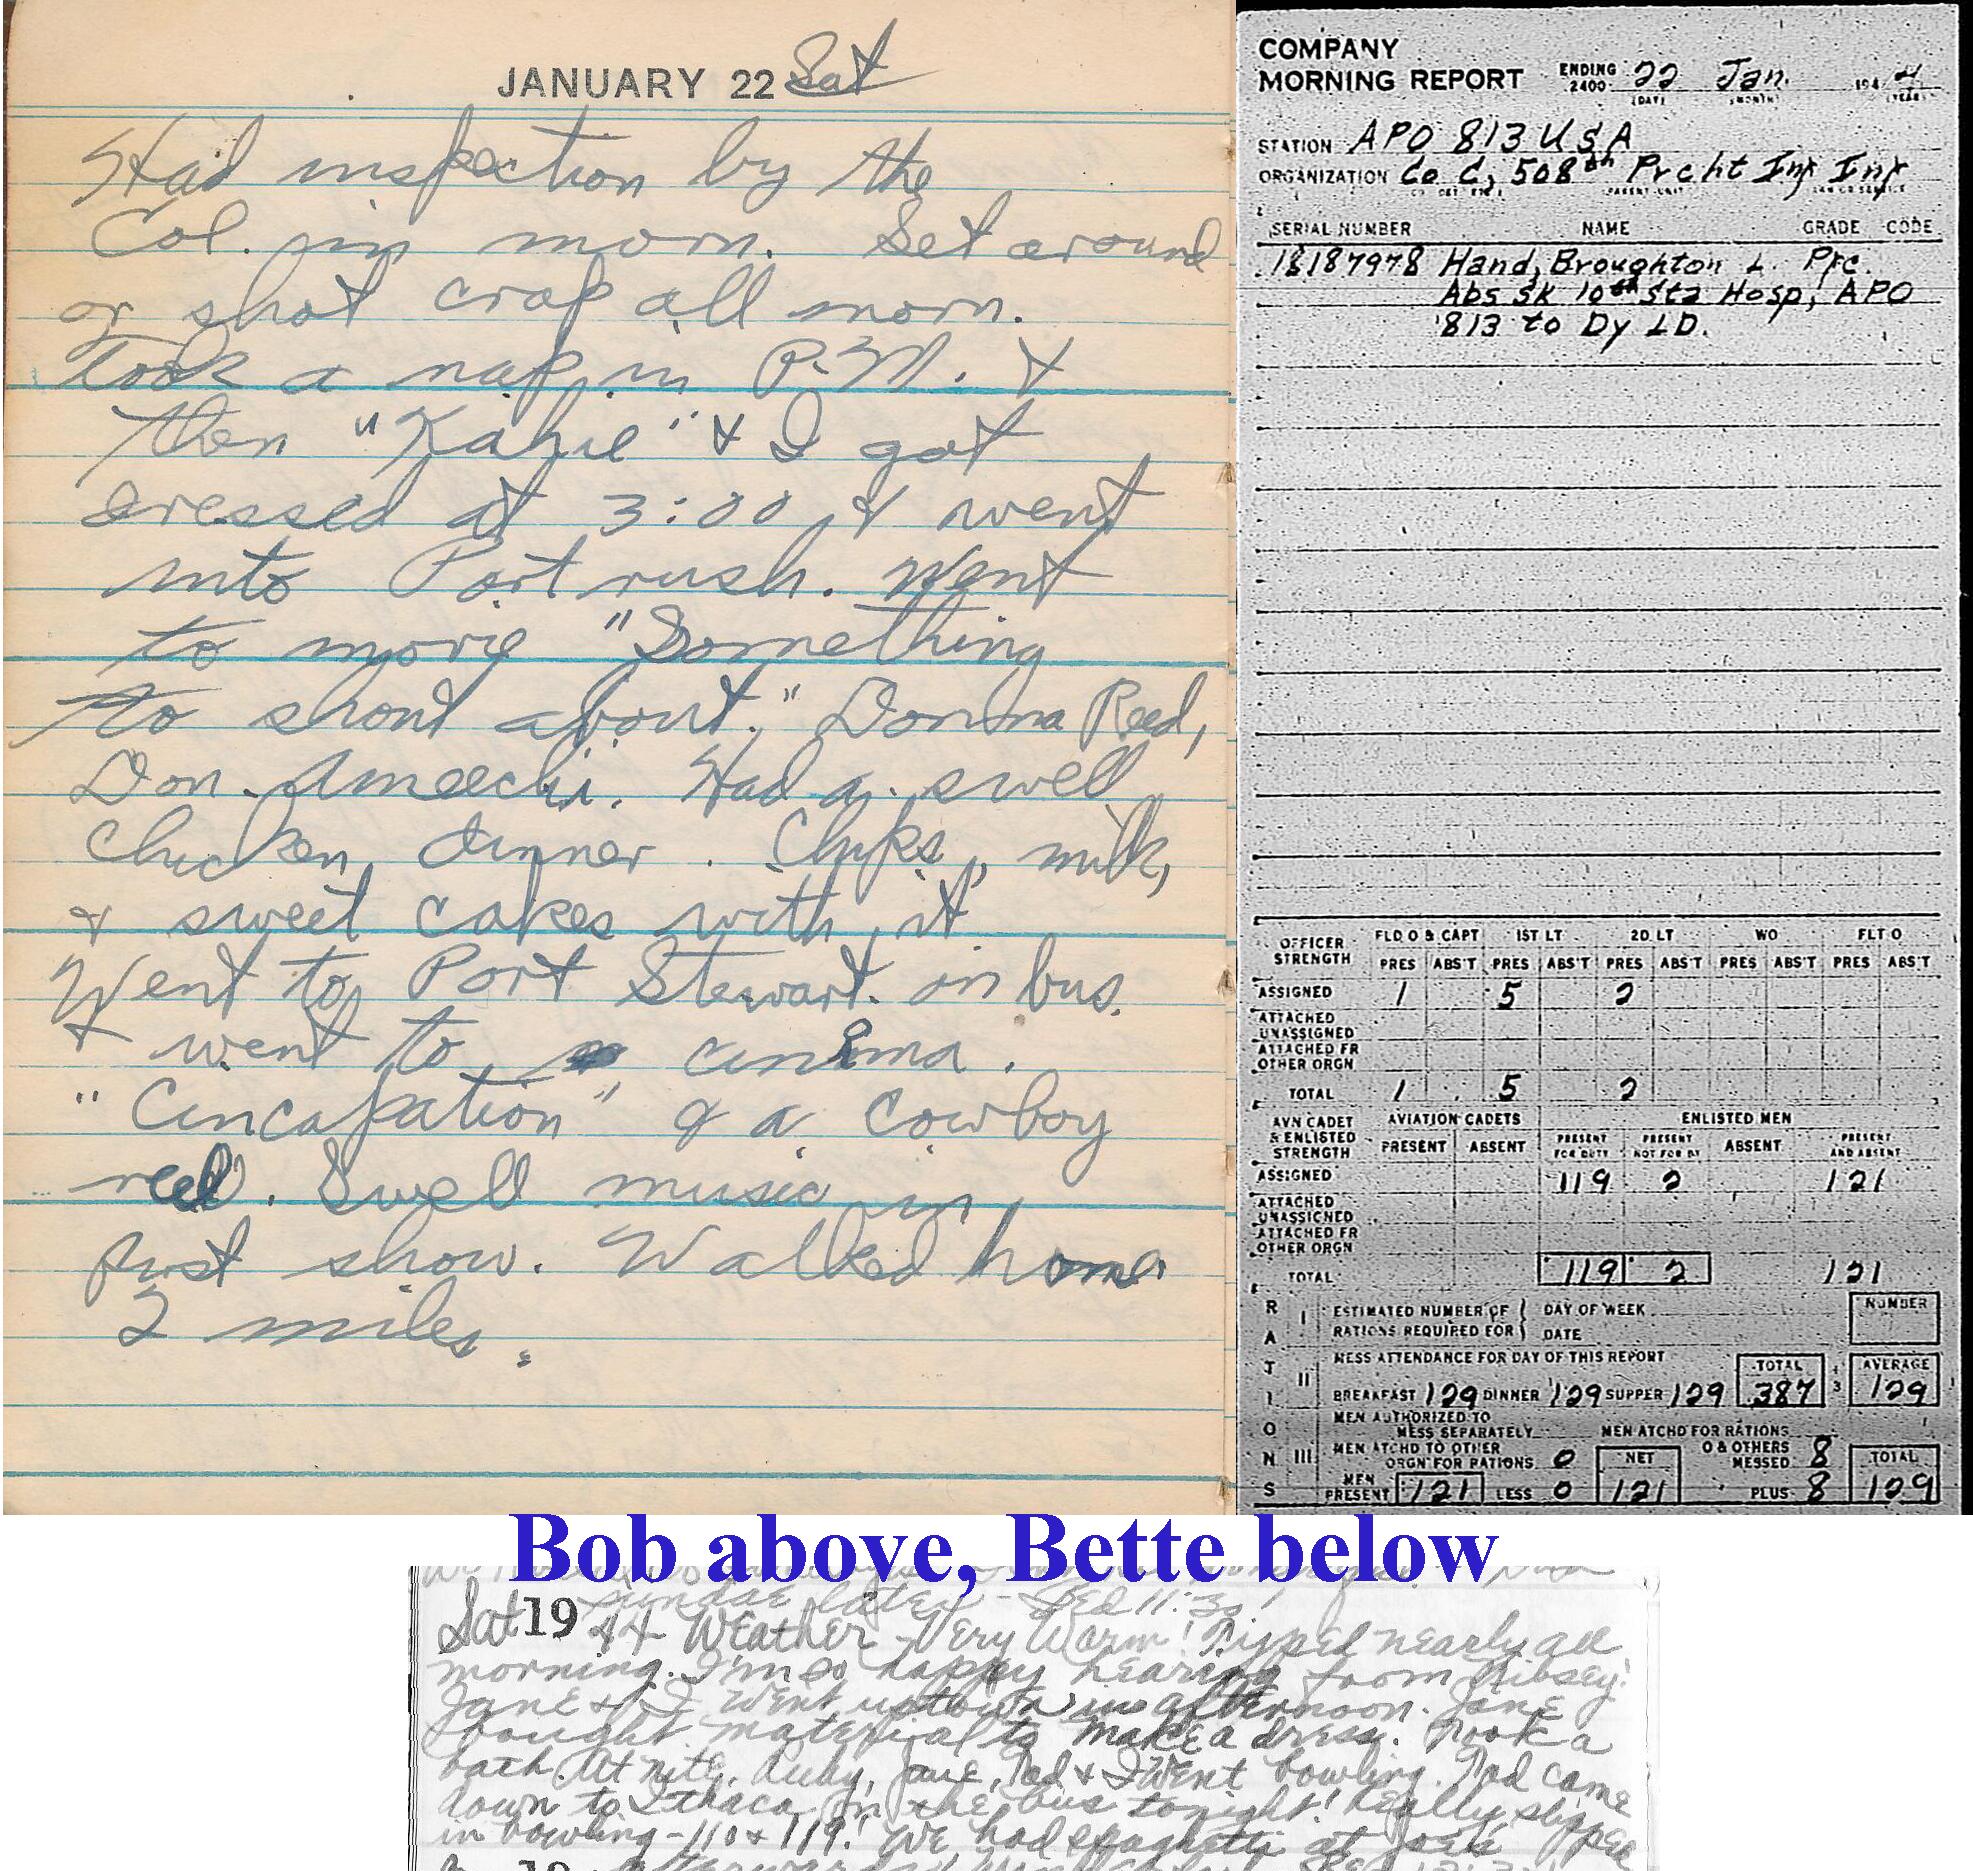 JANUARY 22 Sat
Had inspection by the
Col. in morn. Set around
or shot crap all morn.
Took a nap in P.M. &
then "Kahie" & I got
dressed at 3:00 & went
into Port rush. Went
to movie "Something
to shout about." Donna Reed,
Don Ameechi. Had a swell
chicken dinner. Chips, milk,
& sweet cakes with it
Went to Port Stewart in bus.
& went to cinema.
"Cincapation" & a cowboy
reel. Swell music in
first show. Walked home
2 miles.
COMPANY
MORNING REPORT ENDING 2400 22 Jan. 1944
(DAY) (MONTH) (YEAR)
STATION APO 813 USA
ORGANIZATION Co C, 508th Prcht Inf Inf
SERIAL NUMBER NAME GRADE CODE
18187978 Hand, Broughton L. Pfc.
Abs Sk 10th Sta Hosp, APO
813 to Dy LD.
OFFICER STRENGTH FLD O & CAPT 1ST LT 2D LT WO FLT O
PRES ABS'T PRES ABS'T PRES ABS'T PRES ABS'T PRES ABS'T
ASSIGNED 1 5 2
ATTACHED UNASSIGNED
ATTACHED FR OTHER ORGN
TOTAL 1 5 2
AVN CADET & ENLISTED STRENGTH AVIATION CADETS ENLISTED MEN
PRESENT ABSENT PRESENT FOR DUTY PRESENT NOT FOR DY ABSENT PRESENT AND ABSENT
ASSIGNED 119 2 121
ATTACHED UNASSIGNED
ATTACHED FR OTHER ORGN
TOTAL 119 2 121
RATIONS
I ESTIMATED NUMBER OF RATIONS REQUIRED FOR DAY OF WEEK DATE NUMBER
II MESS ATTENDANCE FOR DAY OF THIS REPORT TOTAL AVERAGE
BREAKFAST 129 DINNER 129 SUPPER 129 387 3 129
III MEN AUTHORIZED TO MESS SEPARATELY MEN ATCHD FOR RATIONS
MEN ATCHD TO OTHER ORGN FOR RATIONS 0 NET O & OTHERS MESSED 8 TOTAL
MEN PRESENT 121 LESS 0 121 PLUS 8 129
Bob above, Bette below
sundae later - Bed 11:30!
Sat 19 44 Weather - Very Warm! Typed nearly all
morning. I'm so happy hearing from Kibsey!
Jane & I went uptown in afternoon. Jane
bought material to make a dress. Took a
bath. At nite, Ruby, Jane, Tad & I went bowling. Tad came
down to Ithaca on the bus tonight! Really slipped
in bowling - 110 & 119! We had spaghetti at Joe's